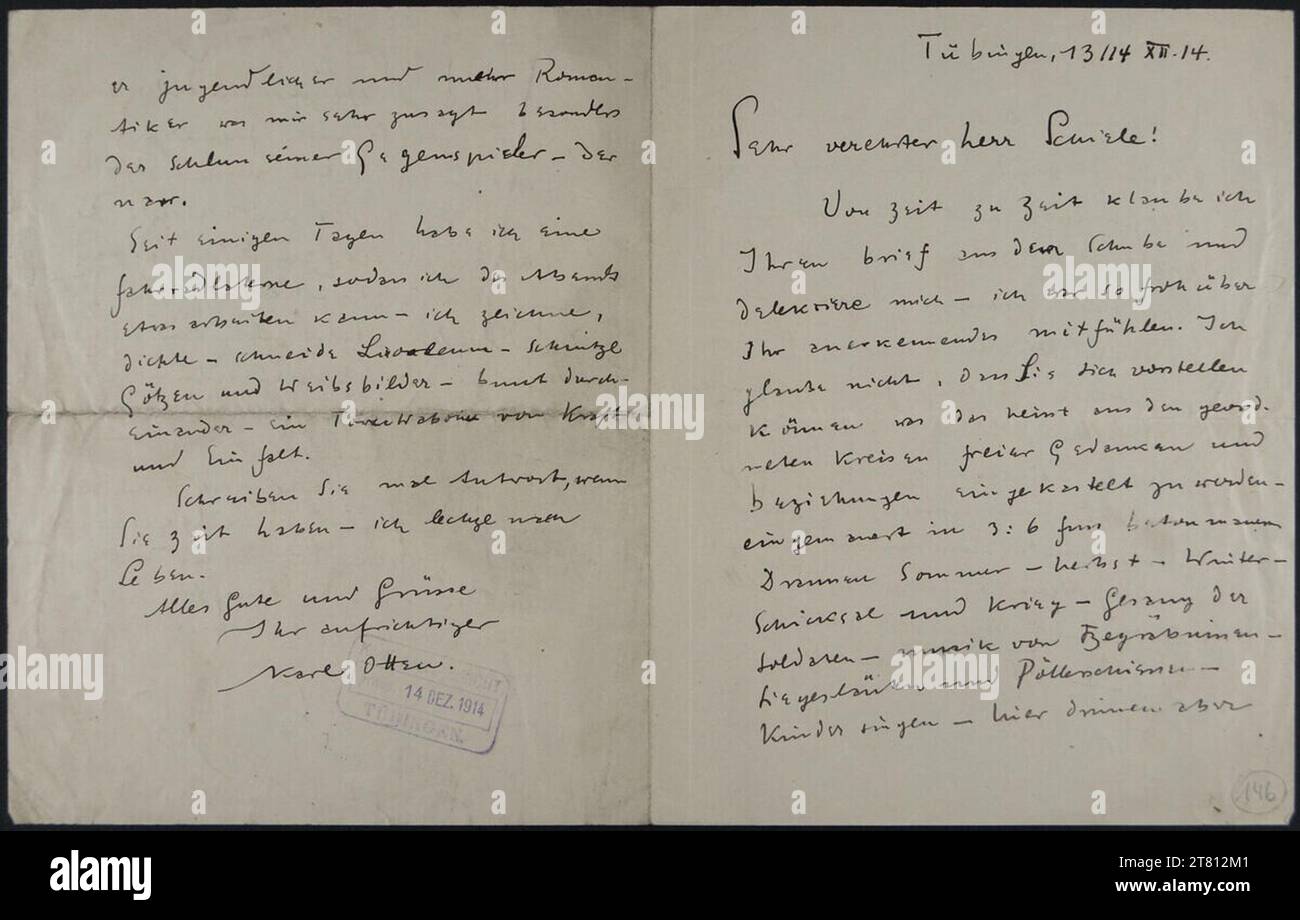 Tübingen, 13/14 XII. 14.
Sehr verehrter Herr Schiele!
Von Zeit zu Zeit klaube ich
Ihren brief aus dem Schube und
delektiere mich – ich war so froh über
Ihr anerkennendes mitfühlen. Ich
glaube nicht, dass Sie sich vorstellen
können was das heisst aus den geord-
neten Kreisen freier Gedanken und
beziehungen eingekastelt zu werden –
eingemauert in 3:6 fuss betonmauern
Draussen Sommer – herbst – Winter –
Schicksal und Krieg – Gesang der
Soldaten – musik von Begräbnissen –
Siegesläuten und Pöllerschiessen –
Kinder singen – hier drinnen aber
er jugendlicher und mehr Roman-
tiker was mir sehr zusagt besonders
der seiner Gegenspieler – der
narr.
Seit einigen Tagen habe ich eine
fahrradlaterne, sodass ich des Abends
etwas arbeiten kann – ich zeichne,
dichte – schneide Linoleum – schnitze
Götzen und Weibsbilder – bunt durch-
einander – ein von Kraft
und Einfalt.
Schreiben Sie mal Antwort, wenn
Sie zeit haben – ich lechze nach
Leben.
Alles Gute und Grüsse
Ihr aufrichtiger
Karl Otten.
14 DEZ. 1914
TÜBINGEN.
146
alamy
Image ID: 2T812M1
www.alamy.com